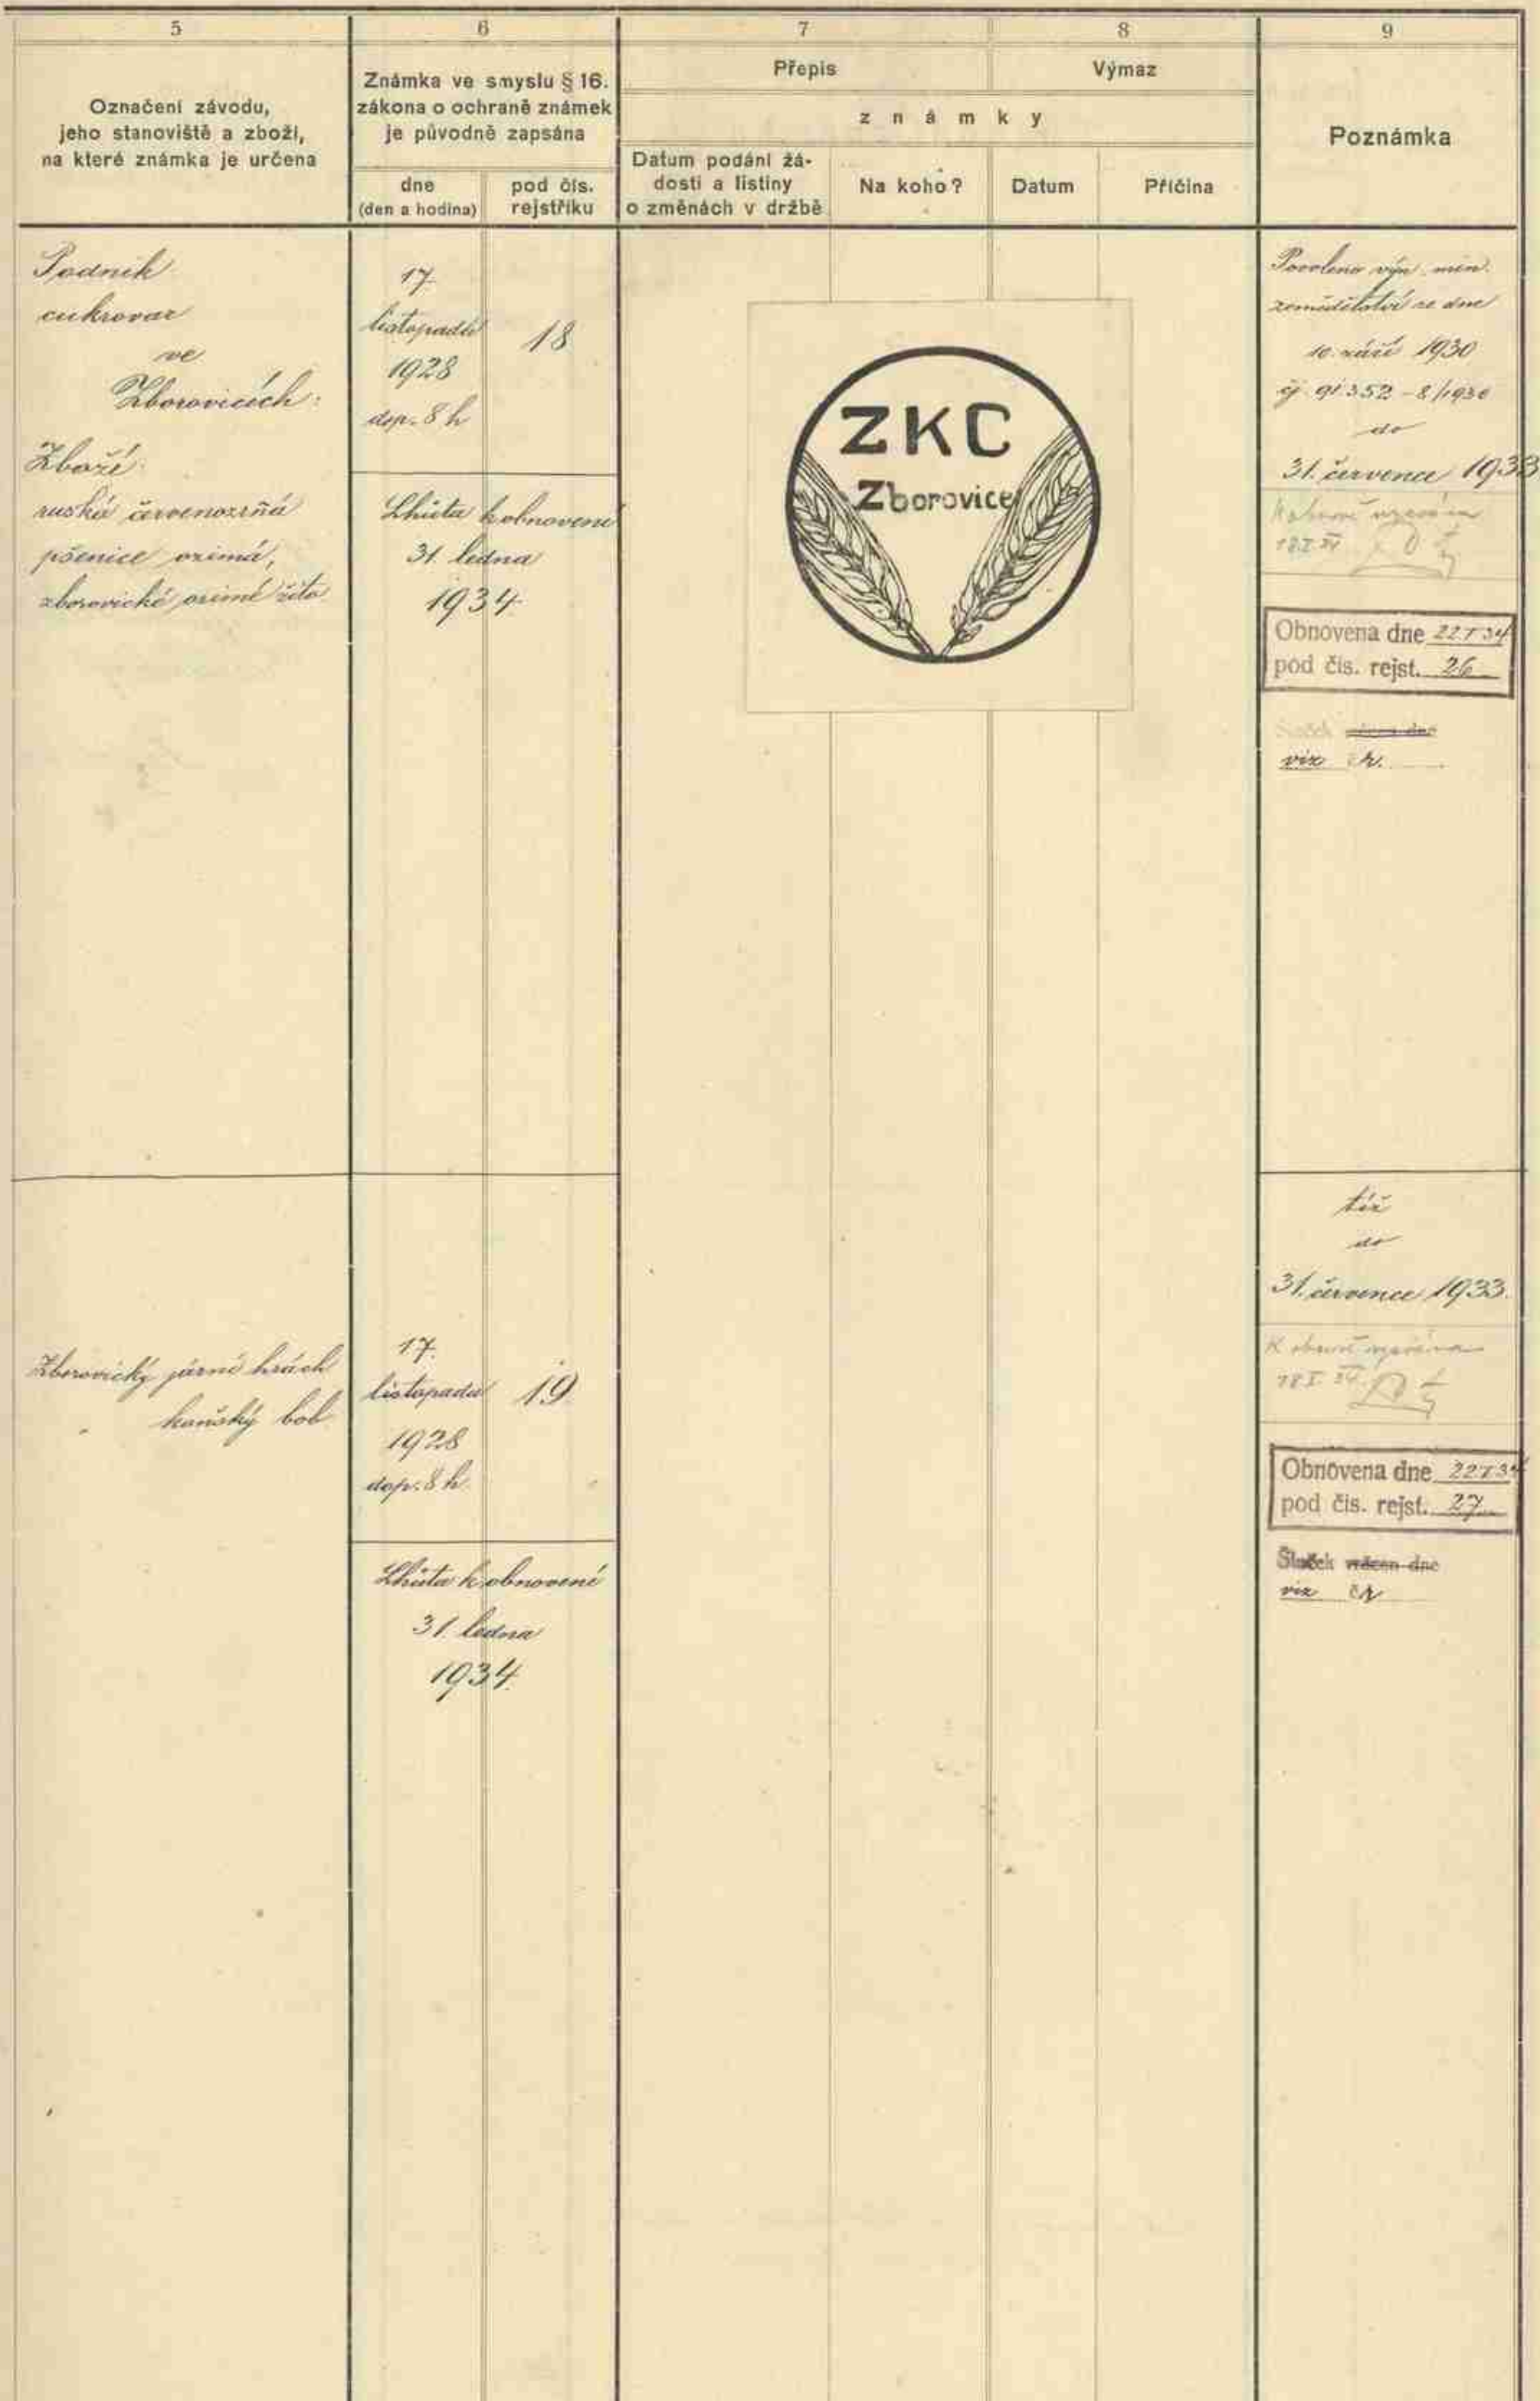 5
6
7
8
9
Označení závodu,
jeho stanoviště a zboží,
na které známka je určena
Známka ve smyslu § 16.
zákona o ochraně známek
je původně zapsána
dne
(den a hodina)
pod čís.
rejstříku
Přepis
Výmaz
známky
Datum podání žá-
dosti a listiny
o změnách v držbě
Na koho?
Datum
Příčina
Poznámka
Podnik
cukrovar
ve
Zborovicích:
Zboží:
ruská červenozrná
pšenice ozimá,
zborovické ozimé žito.
17.
listopadu
1928
dop. 8 h
18
Lhůta k obnovení
31. ledna
1934.
ZKC
Zborovice
Povoleno výn. min.
zemědělství ze dne
10. září 1930
čj. 91.352-8/1930
do
31. července 1933
Obnovena dne 22 I 34
pod čís. rejst. 26
viz
Zborovický jarní hrách
" koňský bob.
17.
listopadu
1928
dop. 8 h.
19
Lhůta k obnovení
31. ledna
1934.
týž
do
31. července 1933.
18 I. 34.
Obnovena dne 22 I 34
pod čís. rejst. 27
vrácen dne
viz